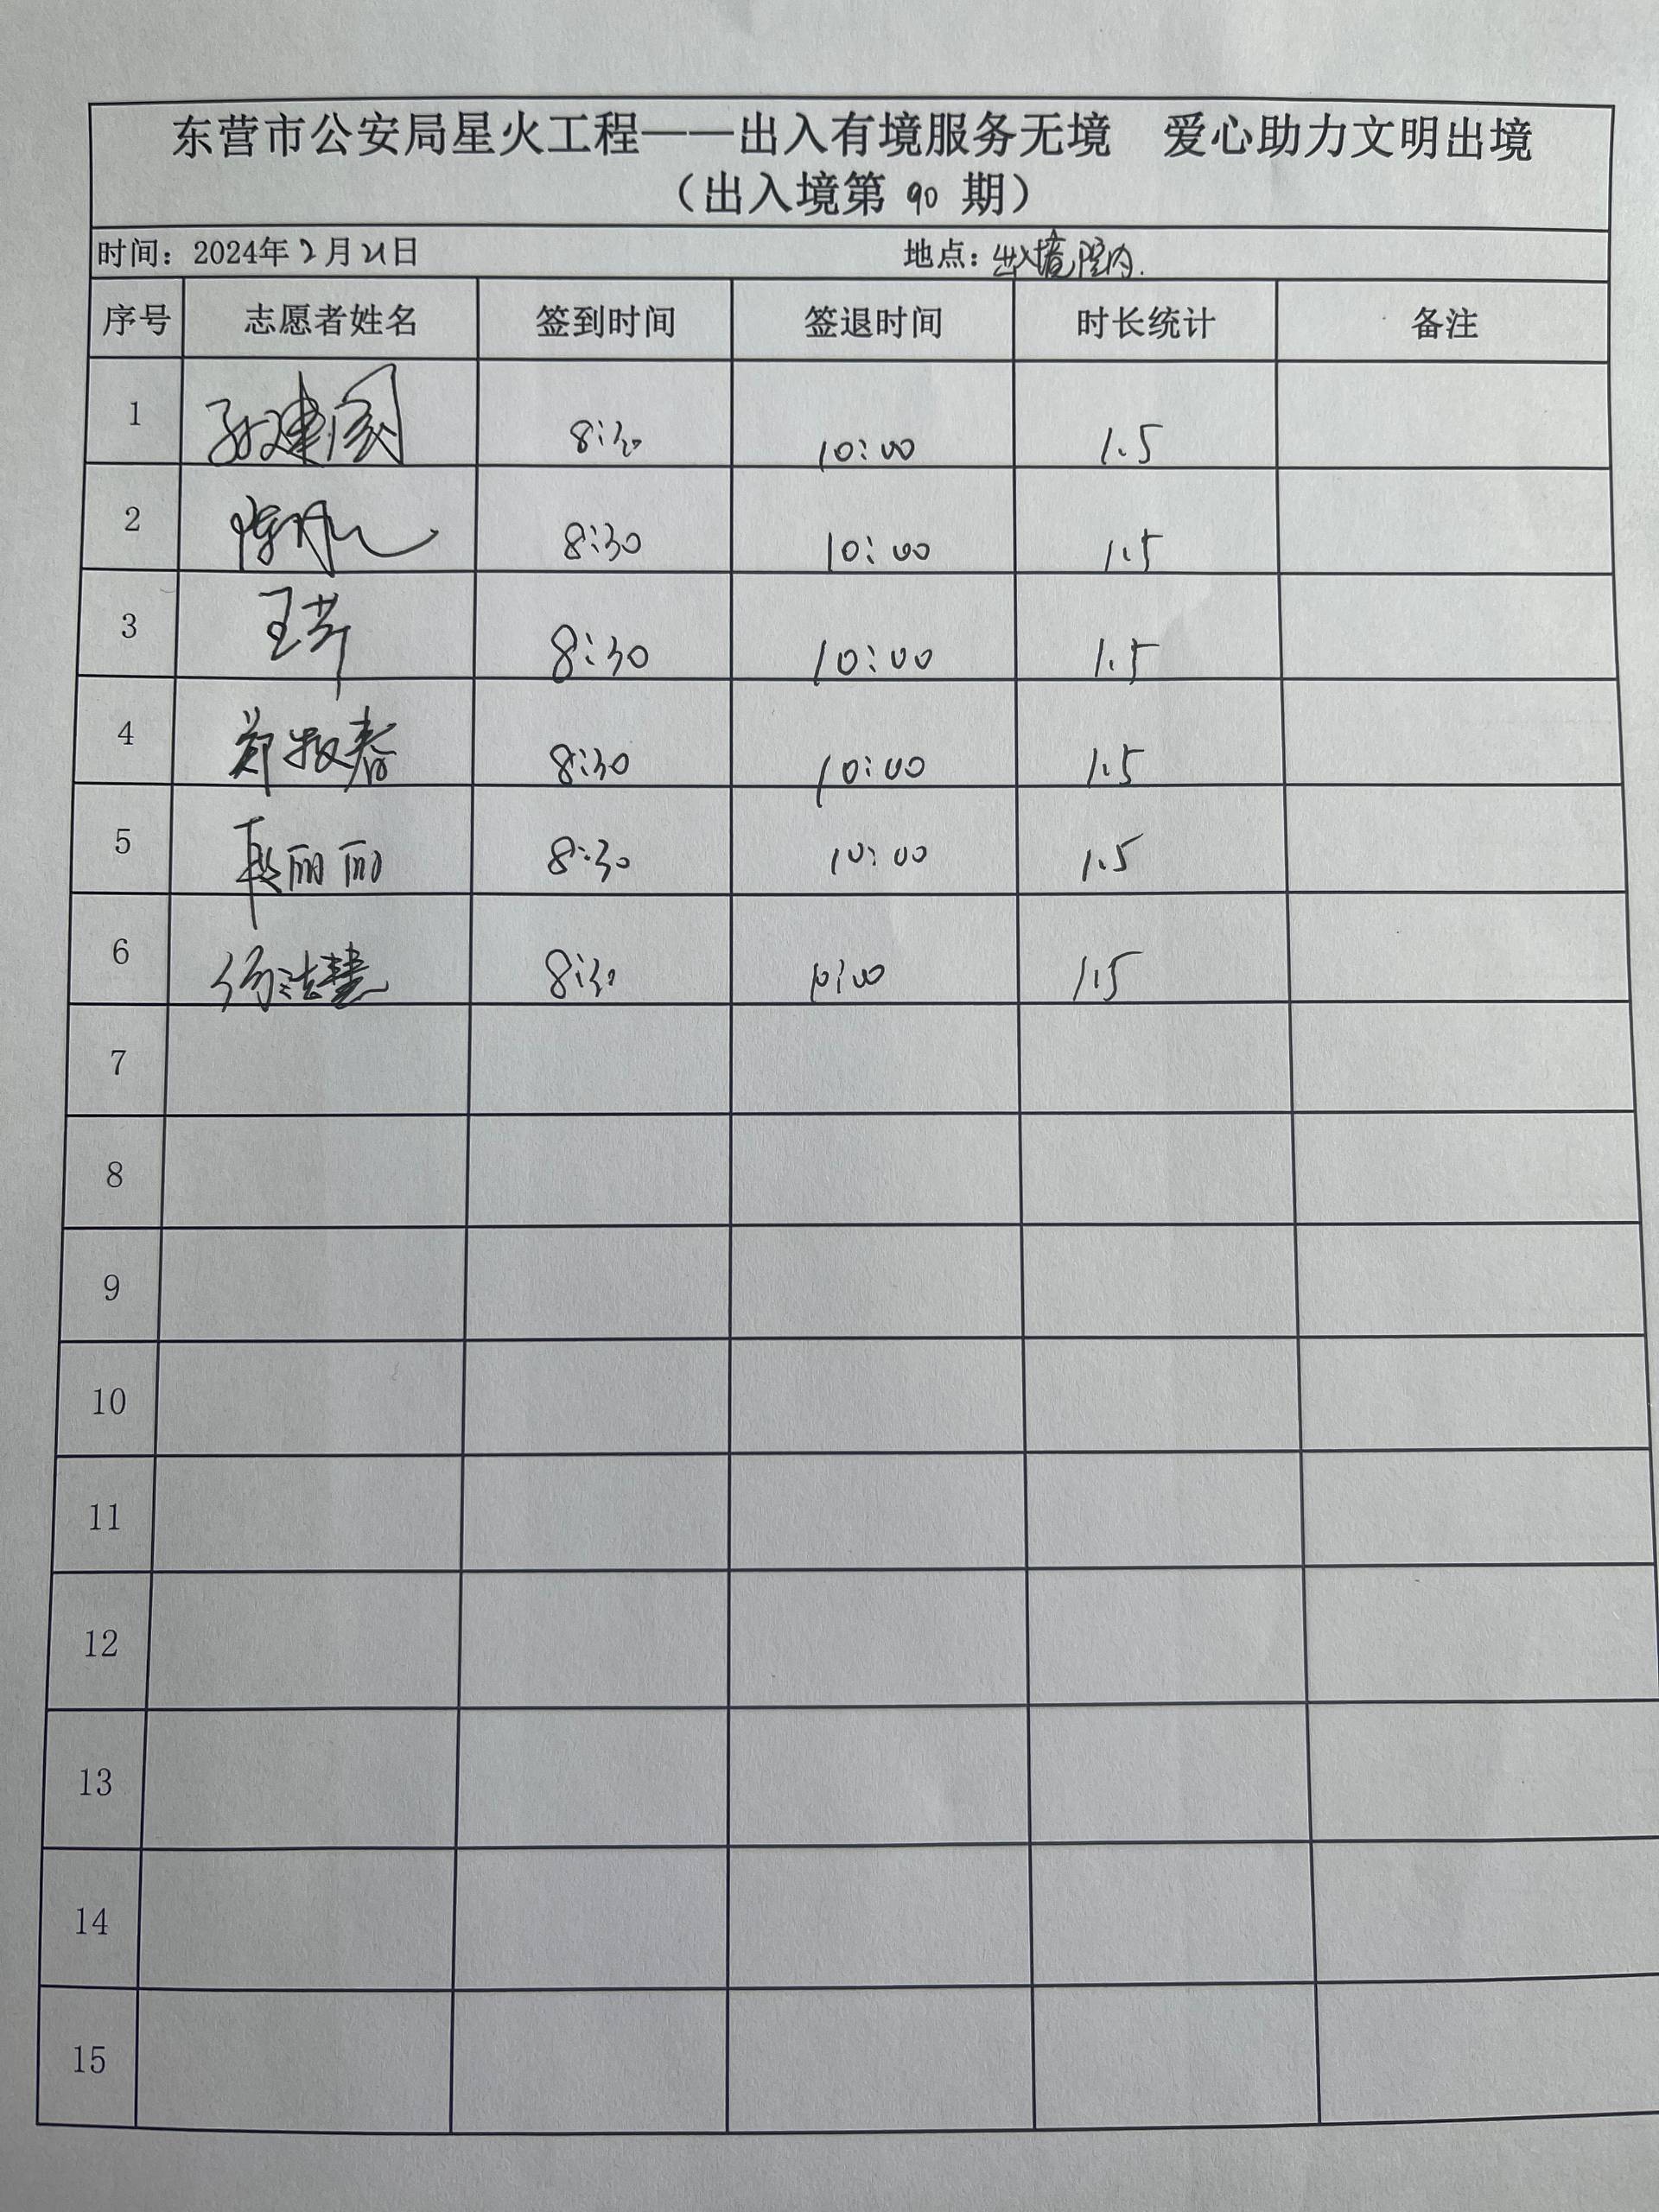 东营市公安局星火工程——出入有境服务无境 爱心助力文明出境
（出入境第 90 期）
时间：2024年2月21日 地点：出入境院内.
序号 志愿者姓名 签到时间 签退时间 时长统计 备注
1 孙建国 8:30 10:00 1.5
2 8:30 10:00 1.5
3 王芹 8:30 10:00 1.5
4 郑牧春 8:30 10:00 1.5
5 耿丽丽 8:30 10:00 1.5
6 8:30 10:00 1.5
7
8
9
10
11
12
13
14
15